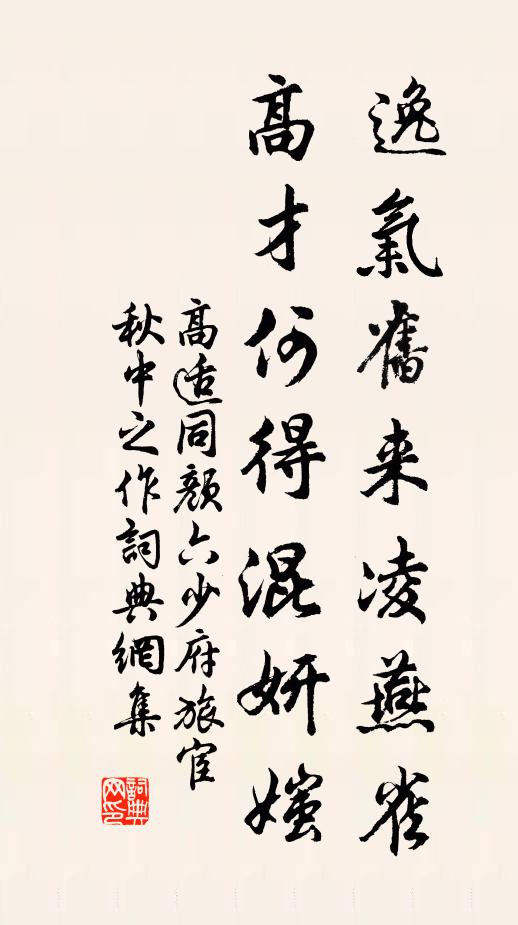 逸氣舊来凌燕雀
髙才何得混妍媸
髙适同顔六少府旅宦
秋中之作詞典網集
詞典
网印